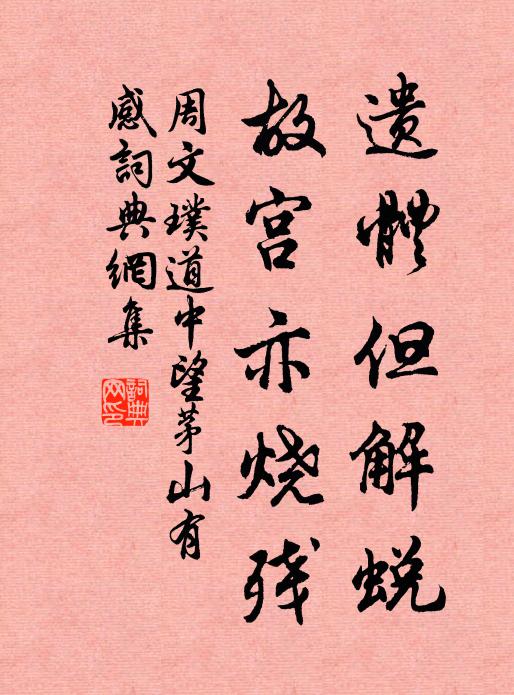 遗體但解蜕
故宫亦烧残
周文璞道中望茅山有
感詞典網集
詞典
网印